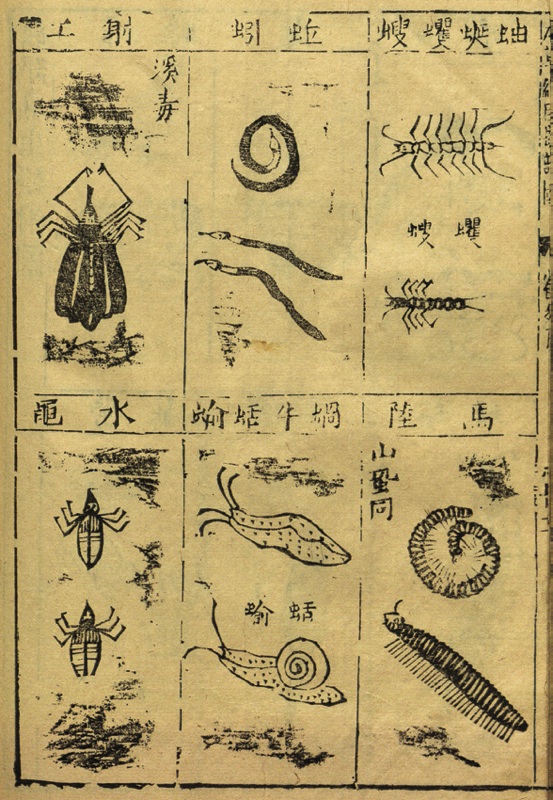 蚰蜒蠼螋
蠼螋
蚯蚓
射工
溪毒
馬陸
山蛩同
蝸牛蛞蝓
蛞蝓
水黽